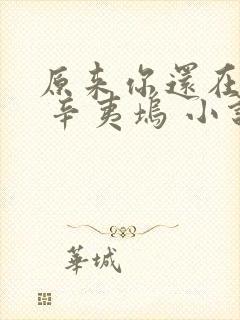 原来你還在
辛夷塢 小
華城